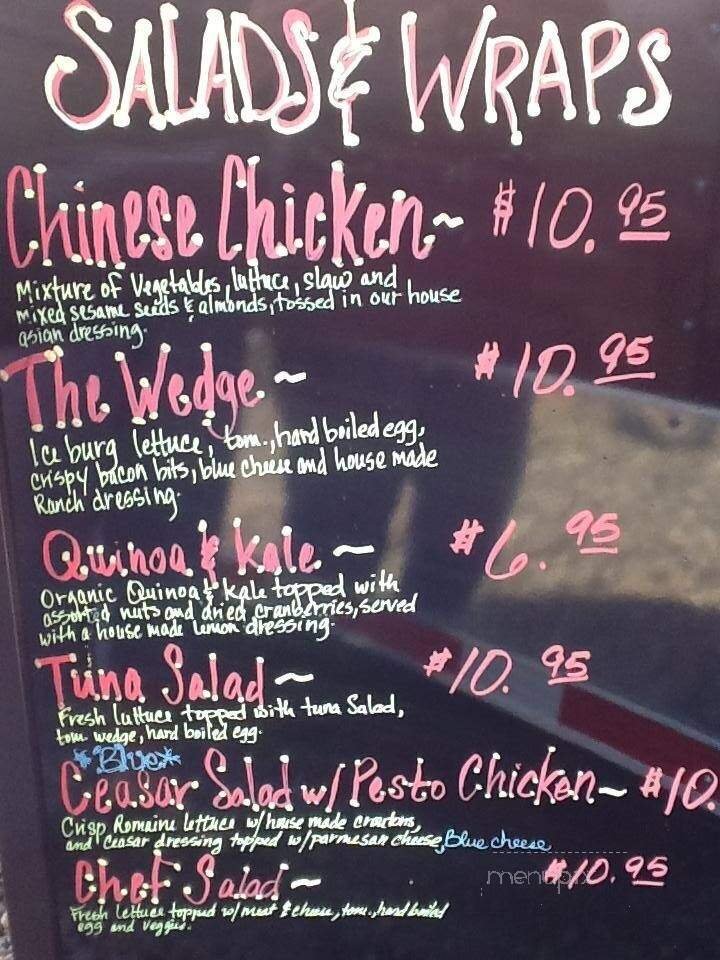 SALADS & WRAPS
Chinese Chicken~ $10.95
Mixture of Vegetables, luttuce, slaw and
mixed sesame seeds & almonds, tossed in our house
asian dressing.
The Wedge~ $10.95
Ice burg lettuce, tom., hard boiled egg,
crispy bacon bits, blue cheese and house made
Ranch dressing.
Quinoa & Kale~ $6.95
Organic Quinoa & Kale topped with
assorted nuts and dried cranberries, served
with a house made lemon dressing.
Tuna Salad~ $10.95
Fresh luttuce topped with tuna Salad,
tom wedge, hard boiled egg.
*Blue*
Ceasar Salad w/ Pesto Chicken~ $10.
Crisp Romaine lettuce w/ house made croutons,
and Ceasar dressing topped w/ parmesan cheese, Blue cheese
Chef Salad~ $10.95
Fresh lettuce topped w/ meat & cheese, tom., hard boiled
egg and veggies.
menupix